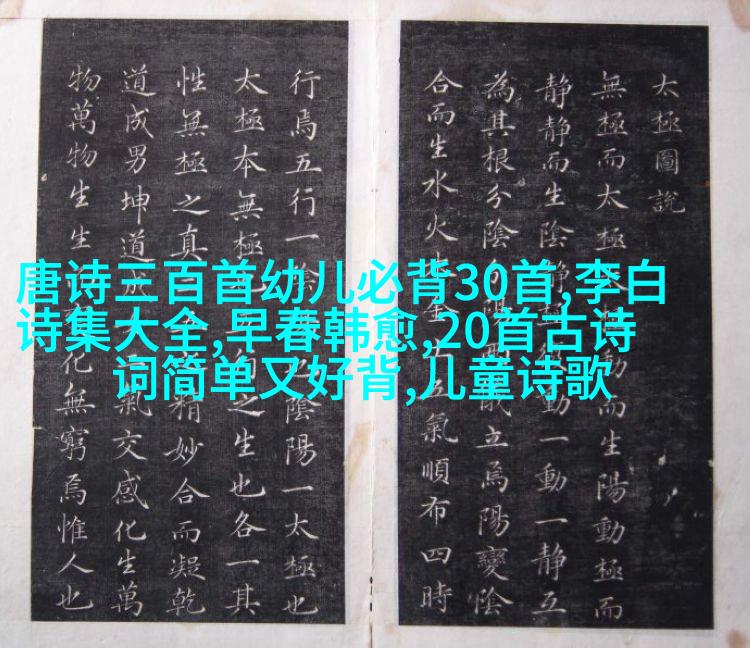 太極圖說
無極而太極動而生陽動極而
静静而生陰静動一動一静互
為其根分陰分陽立焉陽變陰
合而生水火金五氣順布四時
行焉五行一陰陰陽一太極也
太極本無極之生也各一其
性無極之真精妙合而凝乾
道成男坤道成氣交感化生萬
物萬物生生化無窮焉惟人也
唐诗三百首幼儿必背30首,李白
诗集大全,早春韩愈,20首古诗
词简单又好背,儿童诗歌